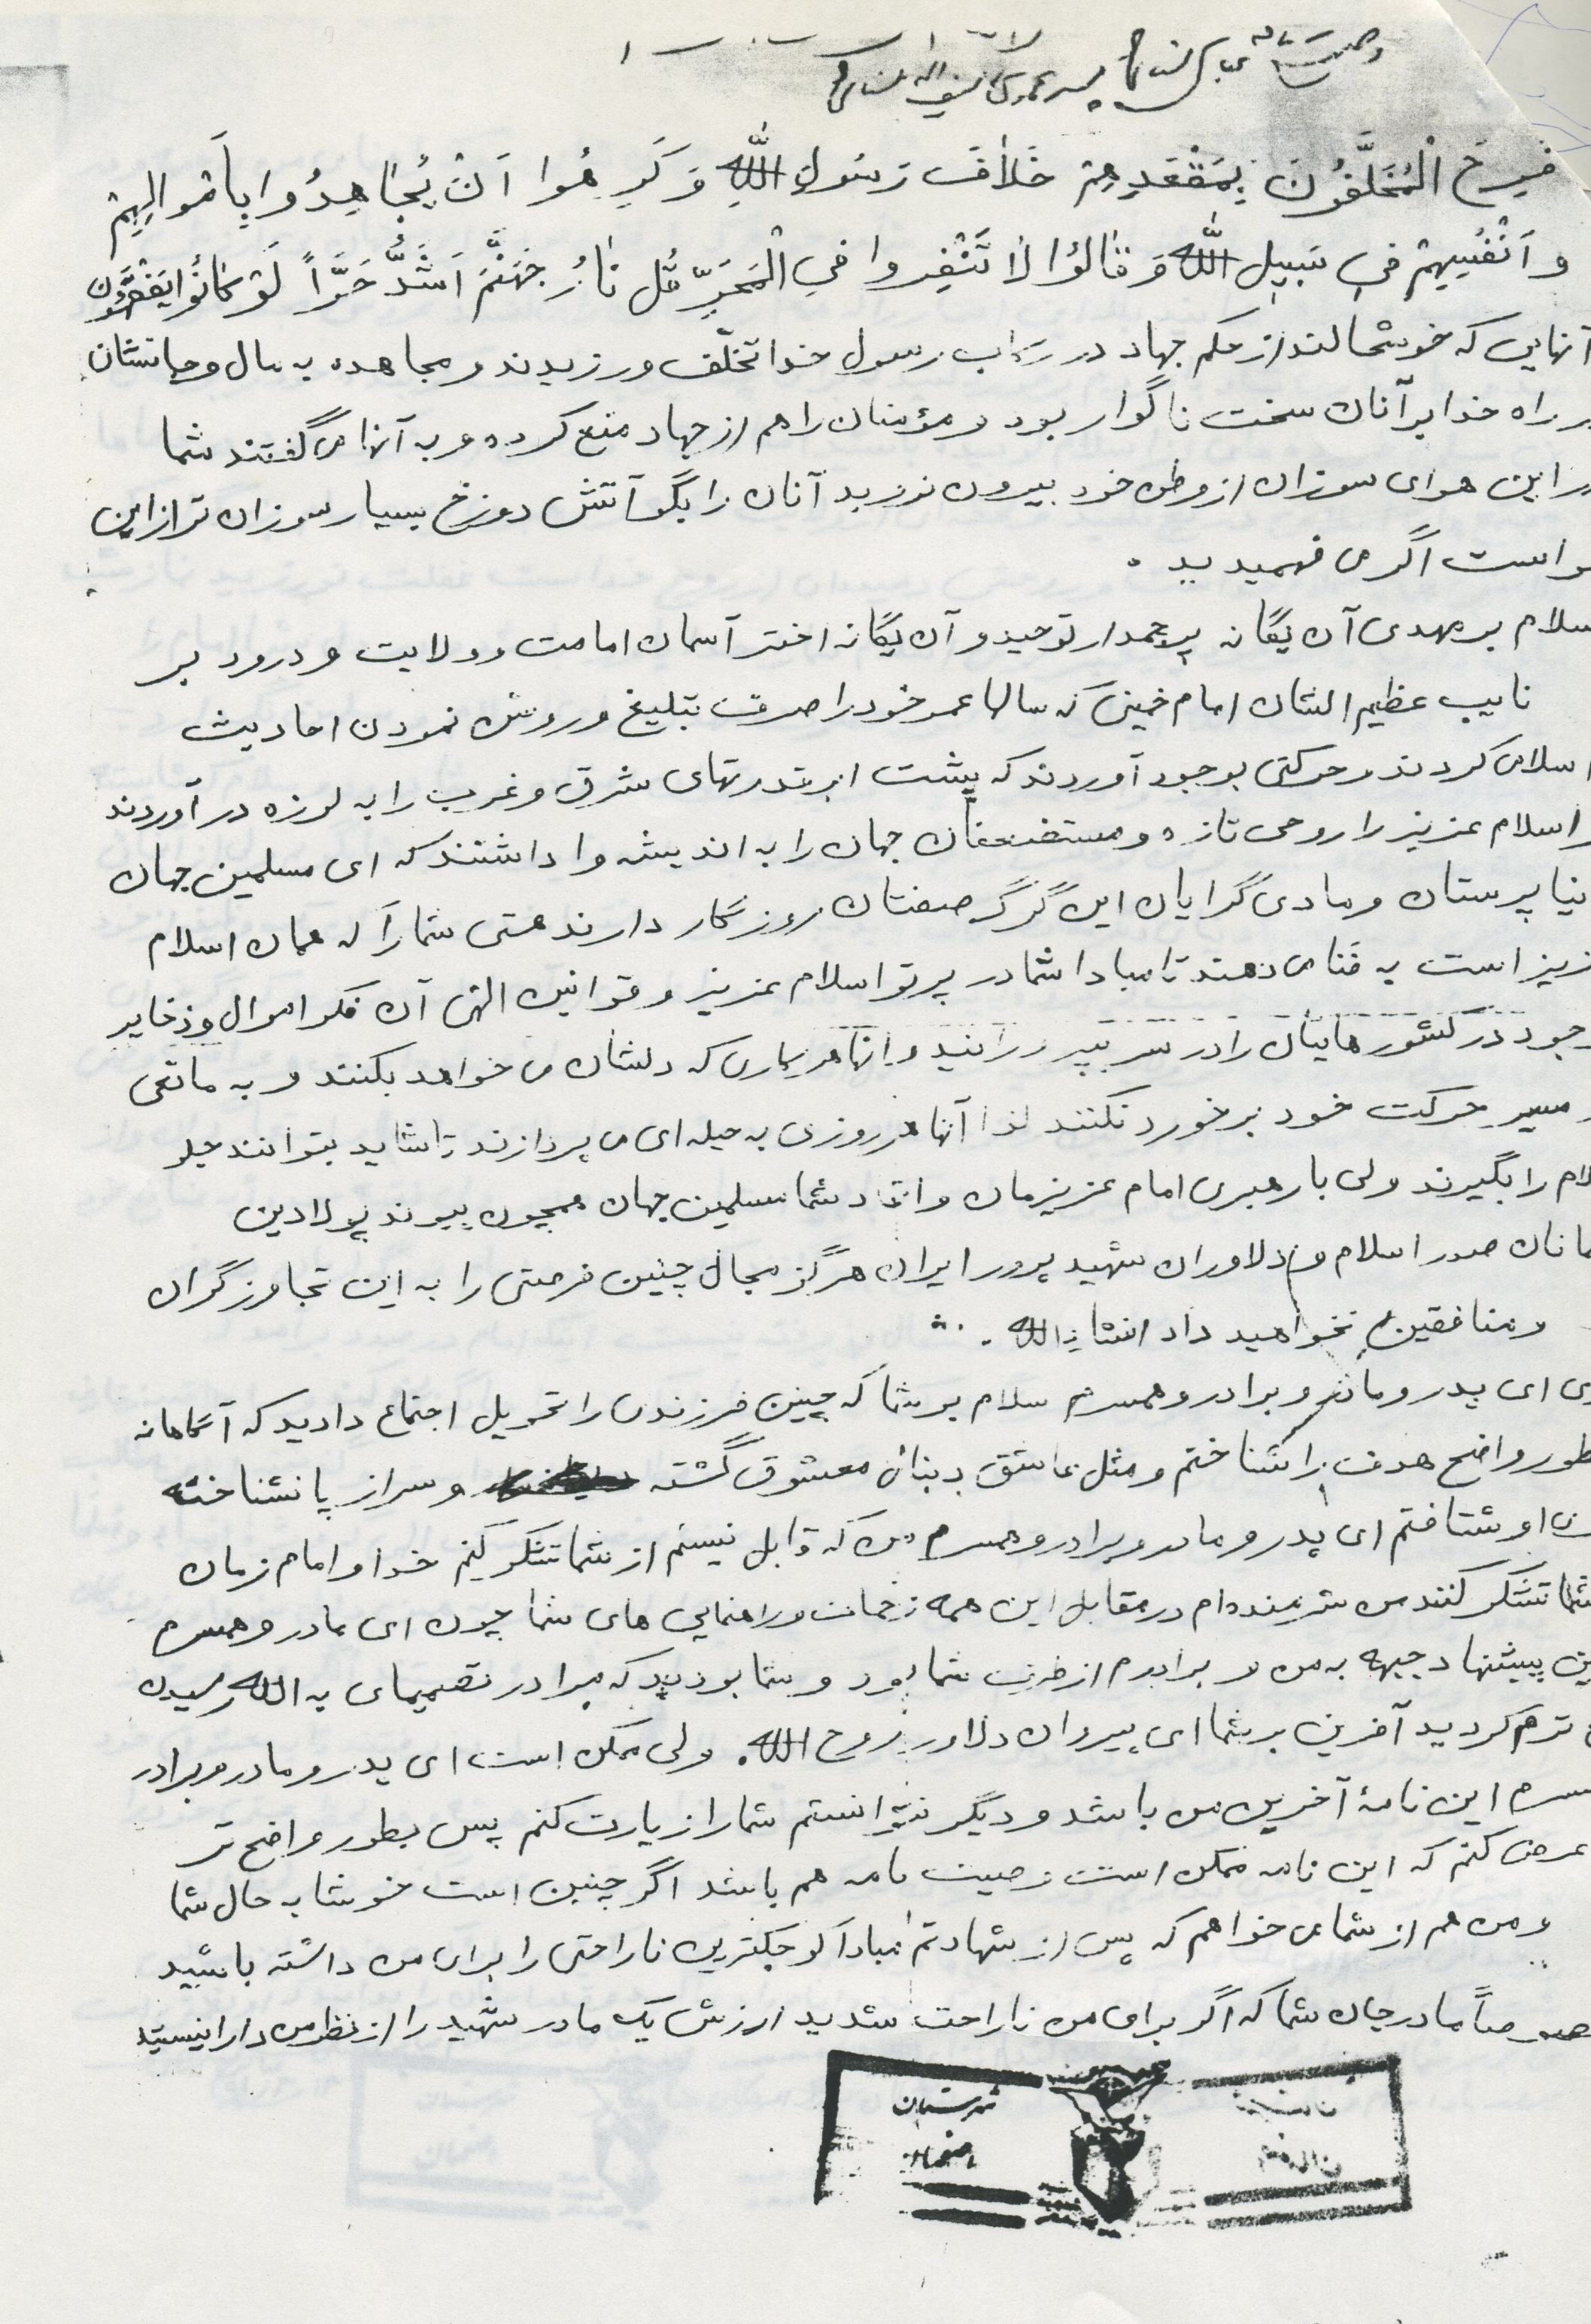 فَرِحَ الْمُخَلَّفُونَ بِمَقْعَدِهِمْ خِلافَ رَسُولِ اللهِ وَ كَرِهُوا اَنْ يُجاهِدُوا بِاَمْوالِهِمْ
و اَنْفُسِهِمْ في سَبيلِ اللهِ وَ قالُوا لا تَنْفِروا فيِ الْحَرِّ قُل نارُ جَهَنَّمَ اَشَدُّ حَرّاً لَوْ كانُوا يَفْقَهُونَ
آنهایی که خوشحالند از حکم جهاد در رکاب رسول خدا تخلّف ورزیدند و مجاهده به مال و جانشان
در راه خدا بر آنان سخت ناگوار بود و مؤمنان را هم از جهاد منع کرده و به آنها می گفتند شما
در این هوای سوزان از وطن خود بیرون نروید آنان را بگو آتش دوزخ بسیار سوزان تر از این
هواست اگر می فهمیدید .
سلام بر مهدی آن یگانه پرچمدار توحید و آن یگانه اختر آسمان امامت و ولایت و درود بر
نایب عظیم الشان امام خمینی که سالها عمر خود را صرف تبلیغ و روشن نمودن احادیث
اسلامی کردند و حرکتی بوجود آوردند که پشت ابرقدرتهای شرق و غرب را به لرزه در آوردند
اسلام عزیز را روحی تازه و مستضعفان جهان را به اندیشه وا داشتند که ای مسلمین جهان
دنیا پرستان و مادی گرایان این گرگ صفتان روزگار دارند هستی شما را که همان اسلام
عزیز است به فنا می دهند تا مبادا شما در پرتو اسلام عزیز و قوانین الهی آن فکر اموال و ذخایر
موجود در کشورهایتان را در سر بپرورانید و آنها هر کاری که دلشان می خواهد بکنند و به مانعی
در مسیر حرکت خود برخورد نکنند لذا آنها هر روزی به حیله ای می پردازند تا شاید بتوانند جلو
اسلام را بگیرند ولی با رهبری امام عزیزمان و اتحاد شما مسلمین جهان همچون پیوند پولادین
مسلمانان صدر اسلام و دلاوران شهید پرور ایران هرگز مجال چنین فرصتی را به این تجاوزگران
و منافقین نخواهید داد انشاءالله .
ای پدر و مادر و برادر و همسرم سلام بر شما که چنین فرزندی را تحویل اجتماع دادید که آگاهانه
بطور واضح هدف را شناختم و مثل عاشق بدنبال معشوق گشته و سر از پا نشناخته
او شتافتم ای پدر و مادر و برادر و همسرم من که قابل نیستم از شما تشکر کنم خدا و امام زمان
شما تشکر کنند من شرمنده ام در مقابل این همه زحمات و راهنمایی های شما چون ای مادر و همسرم
این پیشنهاد جبهه به من و برادرم از طرف شما بود و شما بودید که مرا در تصمیمهای به الله رسیدن
ترم کردید آفرین بر شما ای پیروان دلاور روح الله . ولی ممکن است ای پدر و مادر و برادر
همسرم این نامهٔ آخرین من باشد و دیگر نتوانستم شما را زیارت کنم پس بطور واضح تر
عرض کنم که این نامه ممکن است وصیت نامه هم باشد اگر چنین است خوشا به حال شما
و من هم از شما می خواهم که پس از شهادتم مبادا کوچکترین ناراحتی را برای من داشته باشید
خصوصاً مادر جان شما که اگر برای من ناراحت شدید ارزش یک مادر شهید را از نظر من دارا نیستید
شهرستان